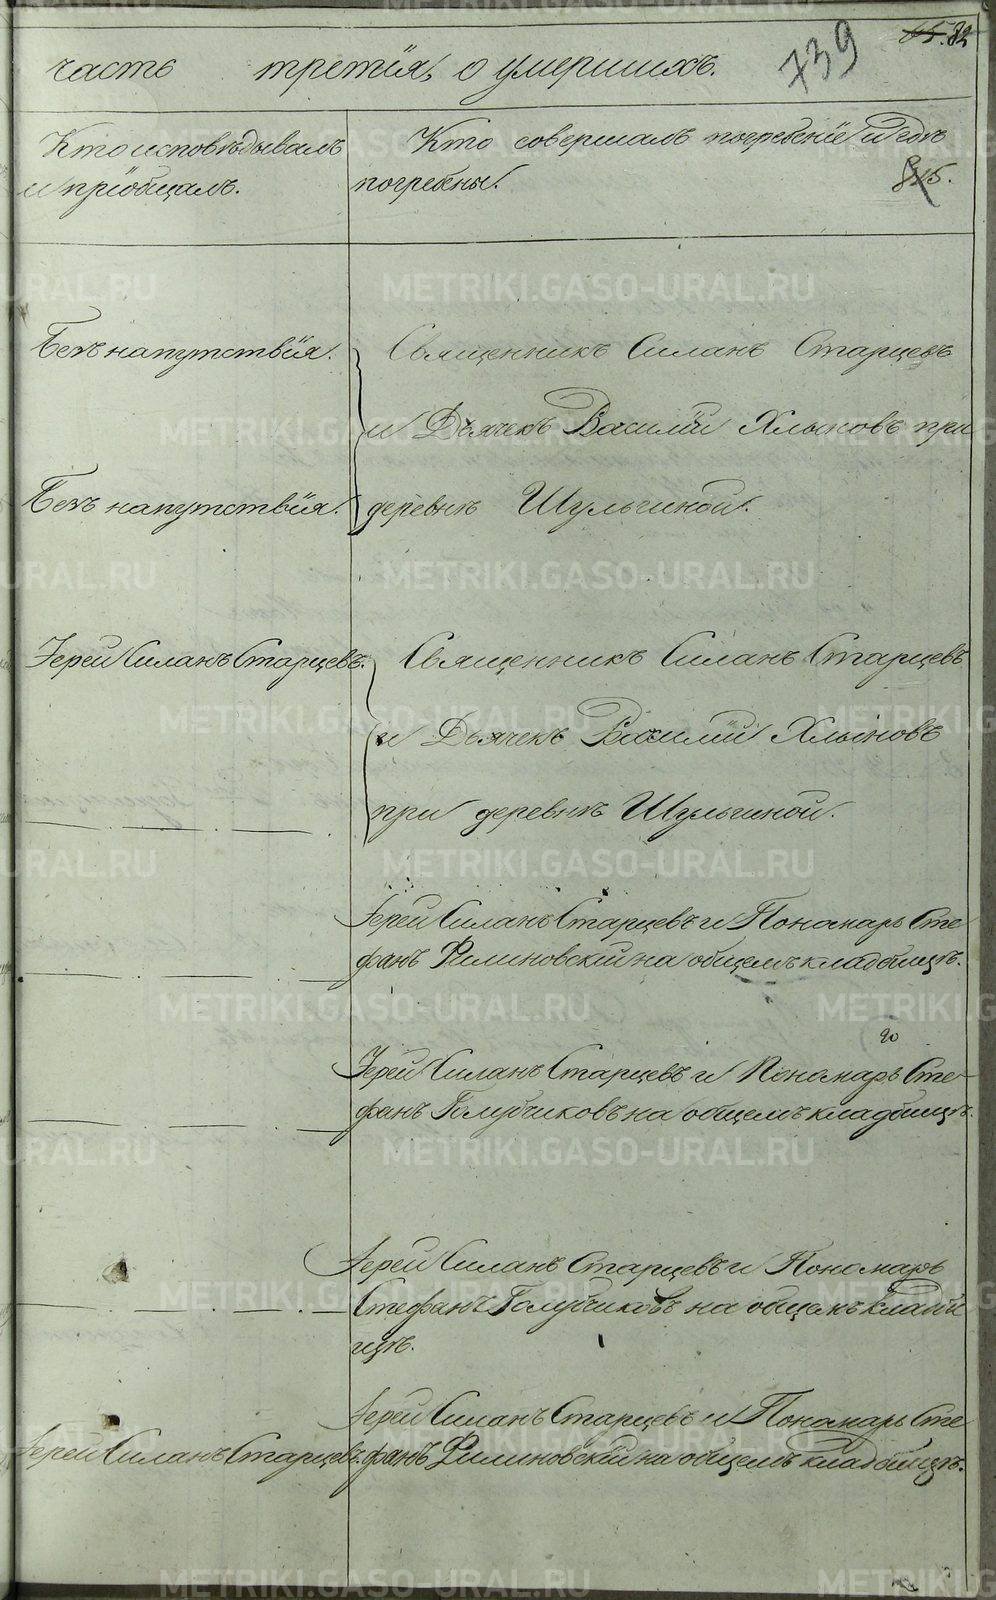 739
65. 82
часть третія, о умершихъ.
Кто исповѣдывалъ
и пріобщалъ.
Кто совершалъ погребеніе и гдѣ
погребены.
Безъ напутствія.
Священникъ Силанъ Старцевъ
и Дьячекъ Василій Хлыновъ при
Безъ напутствія.
деревнѣ Шульгиной.
Іерей Силанъ Старцевъ.
Священникъ Силанъ Старцевъ
и Дьячекъ Василій Хлыновъ
при деревнѣ Шульгиной.
Іерей Силанъ Старцевъ и Пономарь Сте
фанъ Филиновскій на общемъ кладбищѣ.
Іерей Силанъ Старцевъ и Пономарь Сте-
фанъ Голубчиковъ на общемъ кладбищѣ.
Іерей Силанъ Старцевъ и Пономарь
Стефанъ Голубчиковъ на общемъ кладби
щѣ.
Іерей Силанъ Старцевъ и Пономарь Сте
Іерей Силанъ Старцевъ.
фанъ Филиновскій на общемъ кладбищѣ.
METRIKI.GASO-URAL.RU